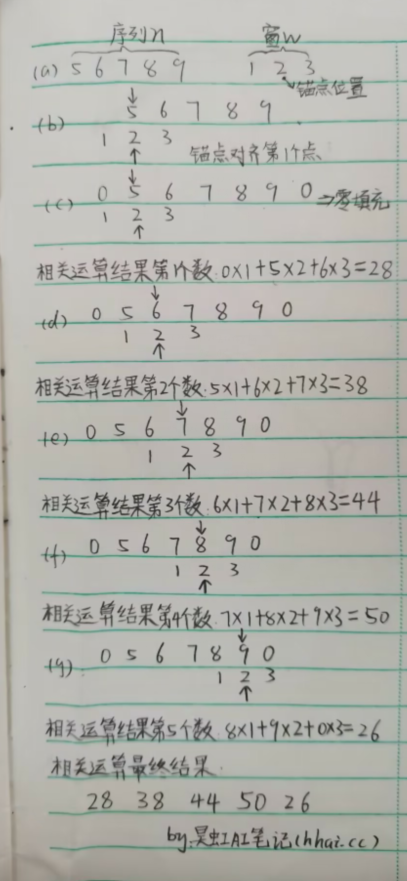 序列n 窗W
(a) 5 6 7 8 9 1 2 3
锚点位置
(b) 5 6 7 8 9
1 2 3 锚点对齐第1个点
(c) 0 5 6 7 8 9 0 ⇒零填充
1 2 3
相关运算结果第1个数:0×1+5×2+6×3=28
(d) 0 5 6 7 8 9 0
1 2 3
相关运算结果第2个数:5×1+6×2+7×3=38
(e) 0 5 6 7 8 9 0
1 2 3
相关运算结果第3个数:6×1+7×2+8×3=44
(f) 0 5 6 7 8 9 0
1 2 3
相关运算结果第4个数:7×1+8×2+9×3=50
(g) 0 5 6 7 8 9 0
1 2 3
相关运算结果第5个数:8×1+9×2+0×3=26
相关运算最终结果:
28 38 44 50 26
by.昊虹AI笔记(hhai.cc)